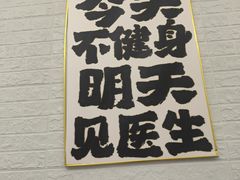 今天
不健身
明天
见医生